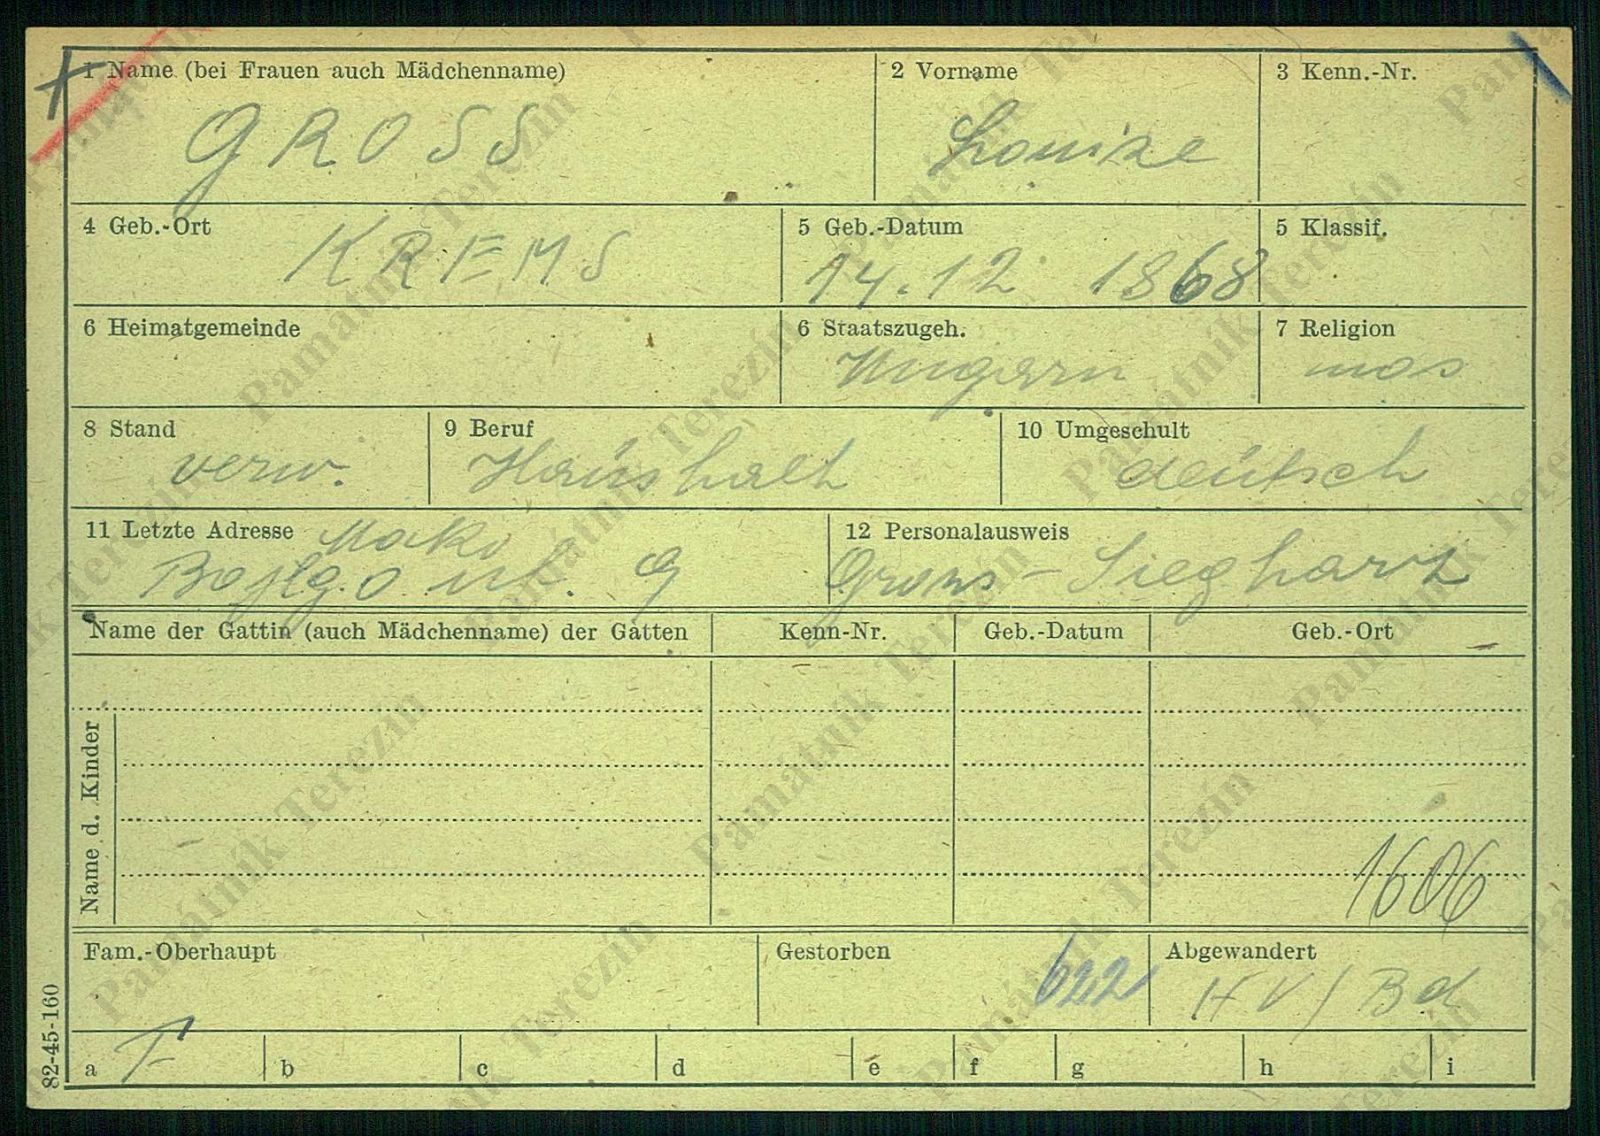 1 Name (bei Frauen auch Mädchenname)
GROSS
2 Vorname
Louise
3 Kenn.-Nr.
4 Geb.-Ort
KREMS
5 Geb.-Datum
14.12 1868
5 Klassif.
6 Heimatgemeinde
6 Staatszugeh.
Ungarn
7 Religion
mos
8 Stand
verw.
9 Beruf
Haushalt
10 Umgeschult
deutsch
11 Letzte Adresse Mako
ut. 9
12 Personalausweis
Gross-Siegharz
Name der Gattin (auch Mädchenname) der Gatten
Kenn-Nr.
Geb.-Datum
Geb.-Ort
Name d. Kinder
1606
Fam.-Oberhaupt
Gestorben
622
Abgewandert
IV/Bd
82-45-160
a F
b
c
d
e
f
g
h
i
Památník Terezín